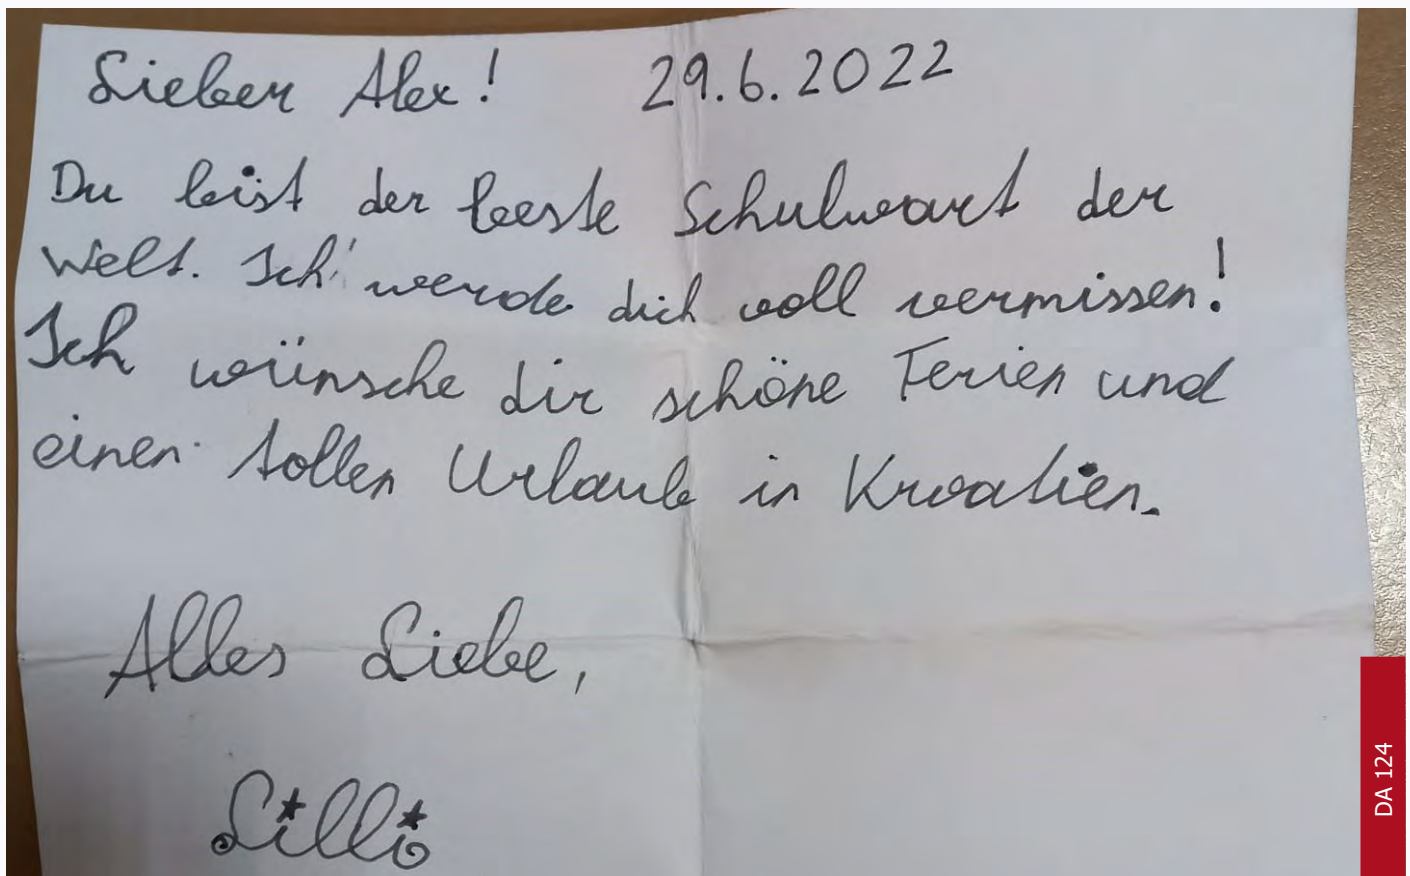 Lieber Alex! 29.6.2022
Du bist der beste Schulwart der
Welt. Ich werde dich voll vermissen!
Ich wünsche dir schöne Ferien und
einen tollen Urlaub in Kroatien.
Alles Liebe,
Lilli
DA 124